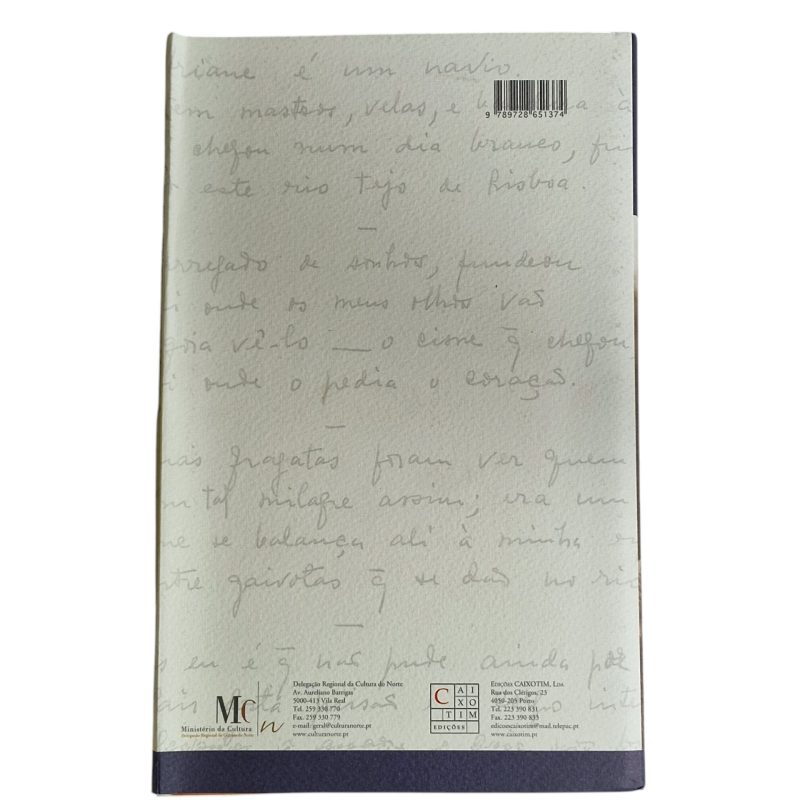 riane é um navio.
em mastros, velas, e b a à
9 789728 651374
chegou num dia branco, fun
este rio Tejo de Lisboa.
rregado de sonhos, fundeou
i onde os meus olhos vão
vê-lo — o cisne q̄ chegou
i onde o pedia o coração.
as fragatas foram ver quem
m tal milagre assim; era um
e se balança ali à minha
ntre gaivotas q̄ se dão no rio
s eu é q̄ não pude ainda
MC
n
Ministério da Cultura
Delegação Regional da Cultura do Norte
Delegação Regional da Cultura do Norte
Av. Aureliano Barrigas
5000-413 Vila Real
Tel. 259 330 770
Fax. 259 330 779
e-mail: geral@culturanorte.pt
www.culturanorte.pt
CAI
XO
TIM
EDIÇÕES
Edições CAIXOTIM, Lda.
Rua dos Clérigos, 23
4050-205 Porto
Tel. 223 390 831
Fax. 223 390 833
edicoescaixotim@mail.telepac.pt
www.caixotim.pt